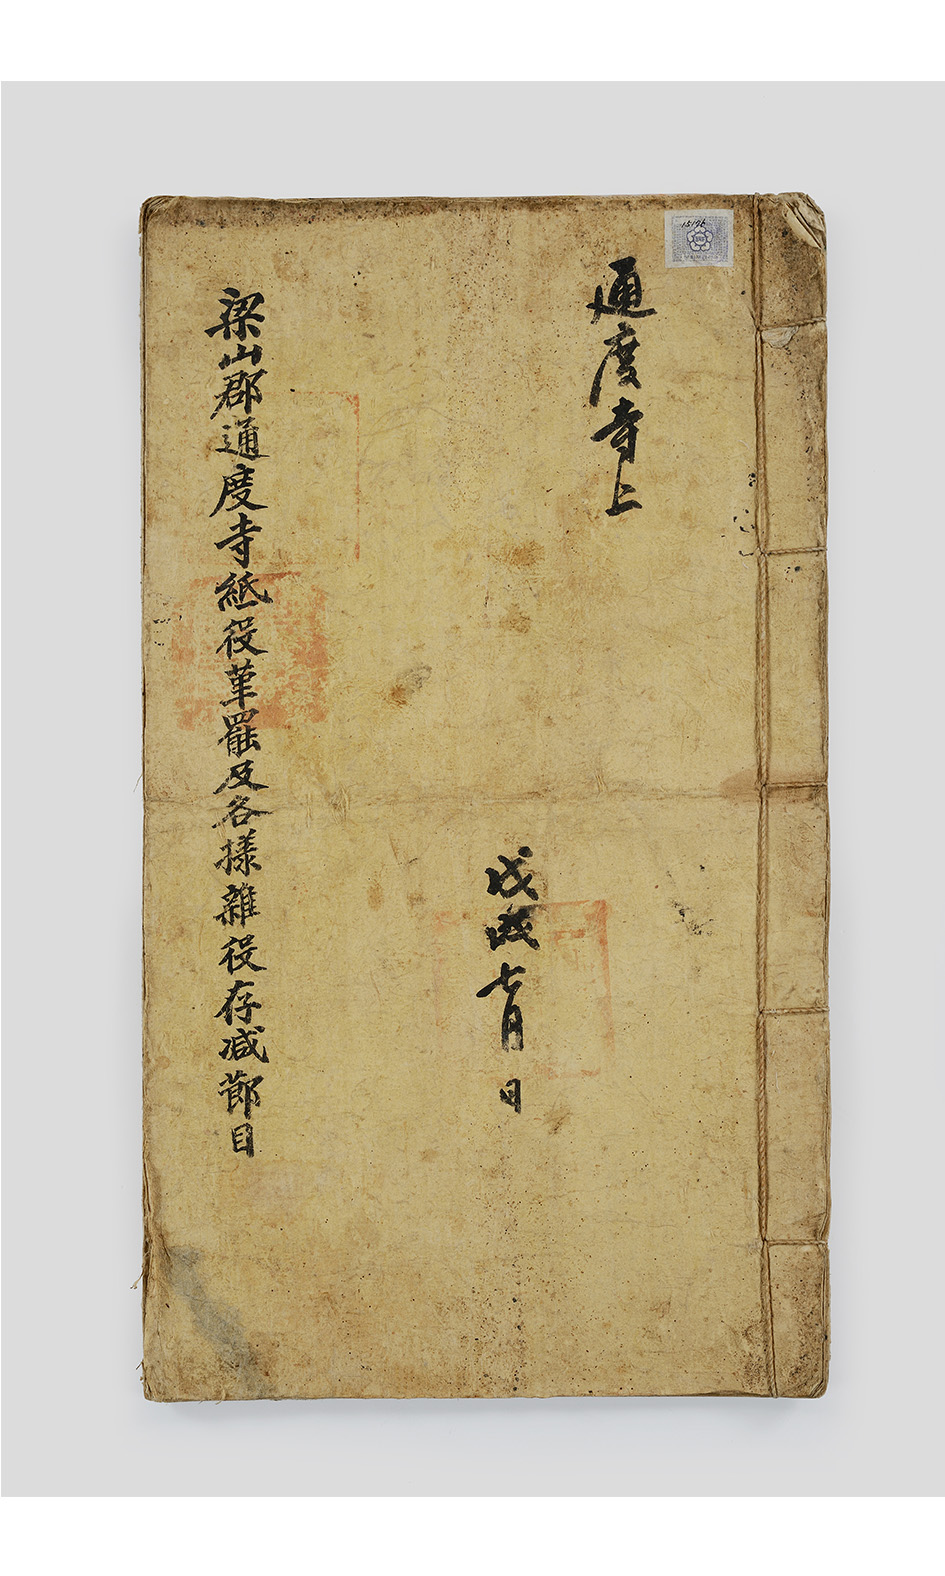 15196
通度寺上
戊戌七月 日
梁山郡通度寺紙役革罷及各樣雜役存减節目